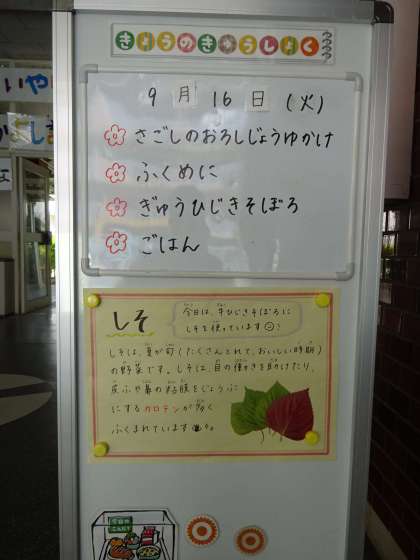 きょうのきゅうしょく
9月16日(火)
さごしのおろしじょうゆかけ
ふくめに
ぎゅうひじきそぼろ
ごはん
しそ
今日は、牛ひじきそぼろに
しそを使っています
しそは、夏が旬(たくさんとれて、おいしい時期)
の野菜です。しそは、目の働きを助けたり、
皮ふや鼻の粘膜をじょうぶ
にするカロテンが多く
ふくまれています